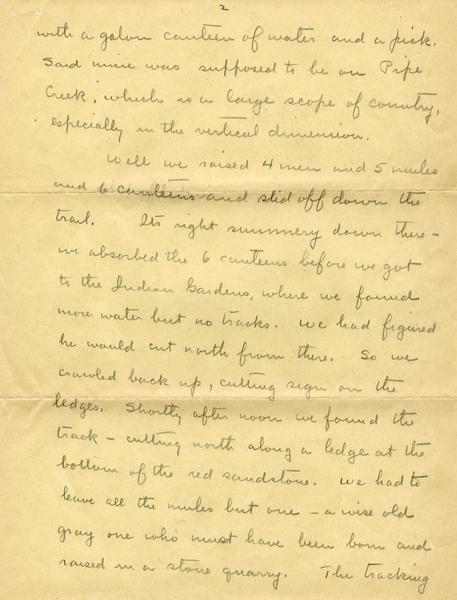 2
with a galon canteen of water and a pick.
Said mine was supposed to be on Pipe
Creek, which is a large scope of country,
especially in the vertical dimension.
Well we raised 4 men and 5 mules
and 6 canteens and slid off down the
trail. Its right summery down there –
we absorbed the 6 canteens before we got
to the Indian Gardens, where we found
more water but no tracks. We had figured
he would cut north from there. So we
crawled back up, cutting sign on the
ledges. Shortly after noon we found the
track – cutting north along a ledge at the
bottom of the red sandstone. We had to
leave all the mules but one – a wise old
gray one who must have been born and
raised in a stone quarry. The tracking